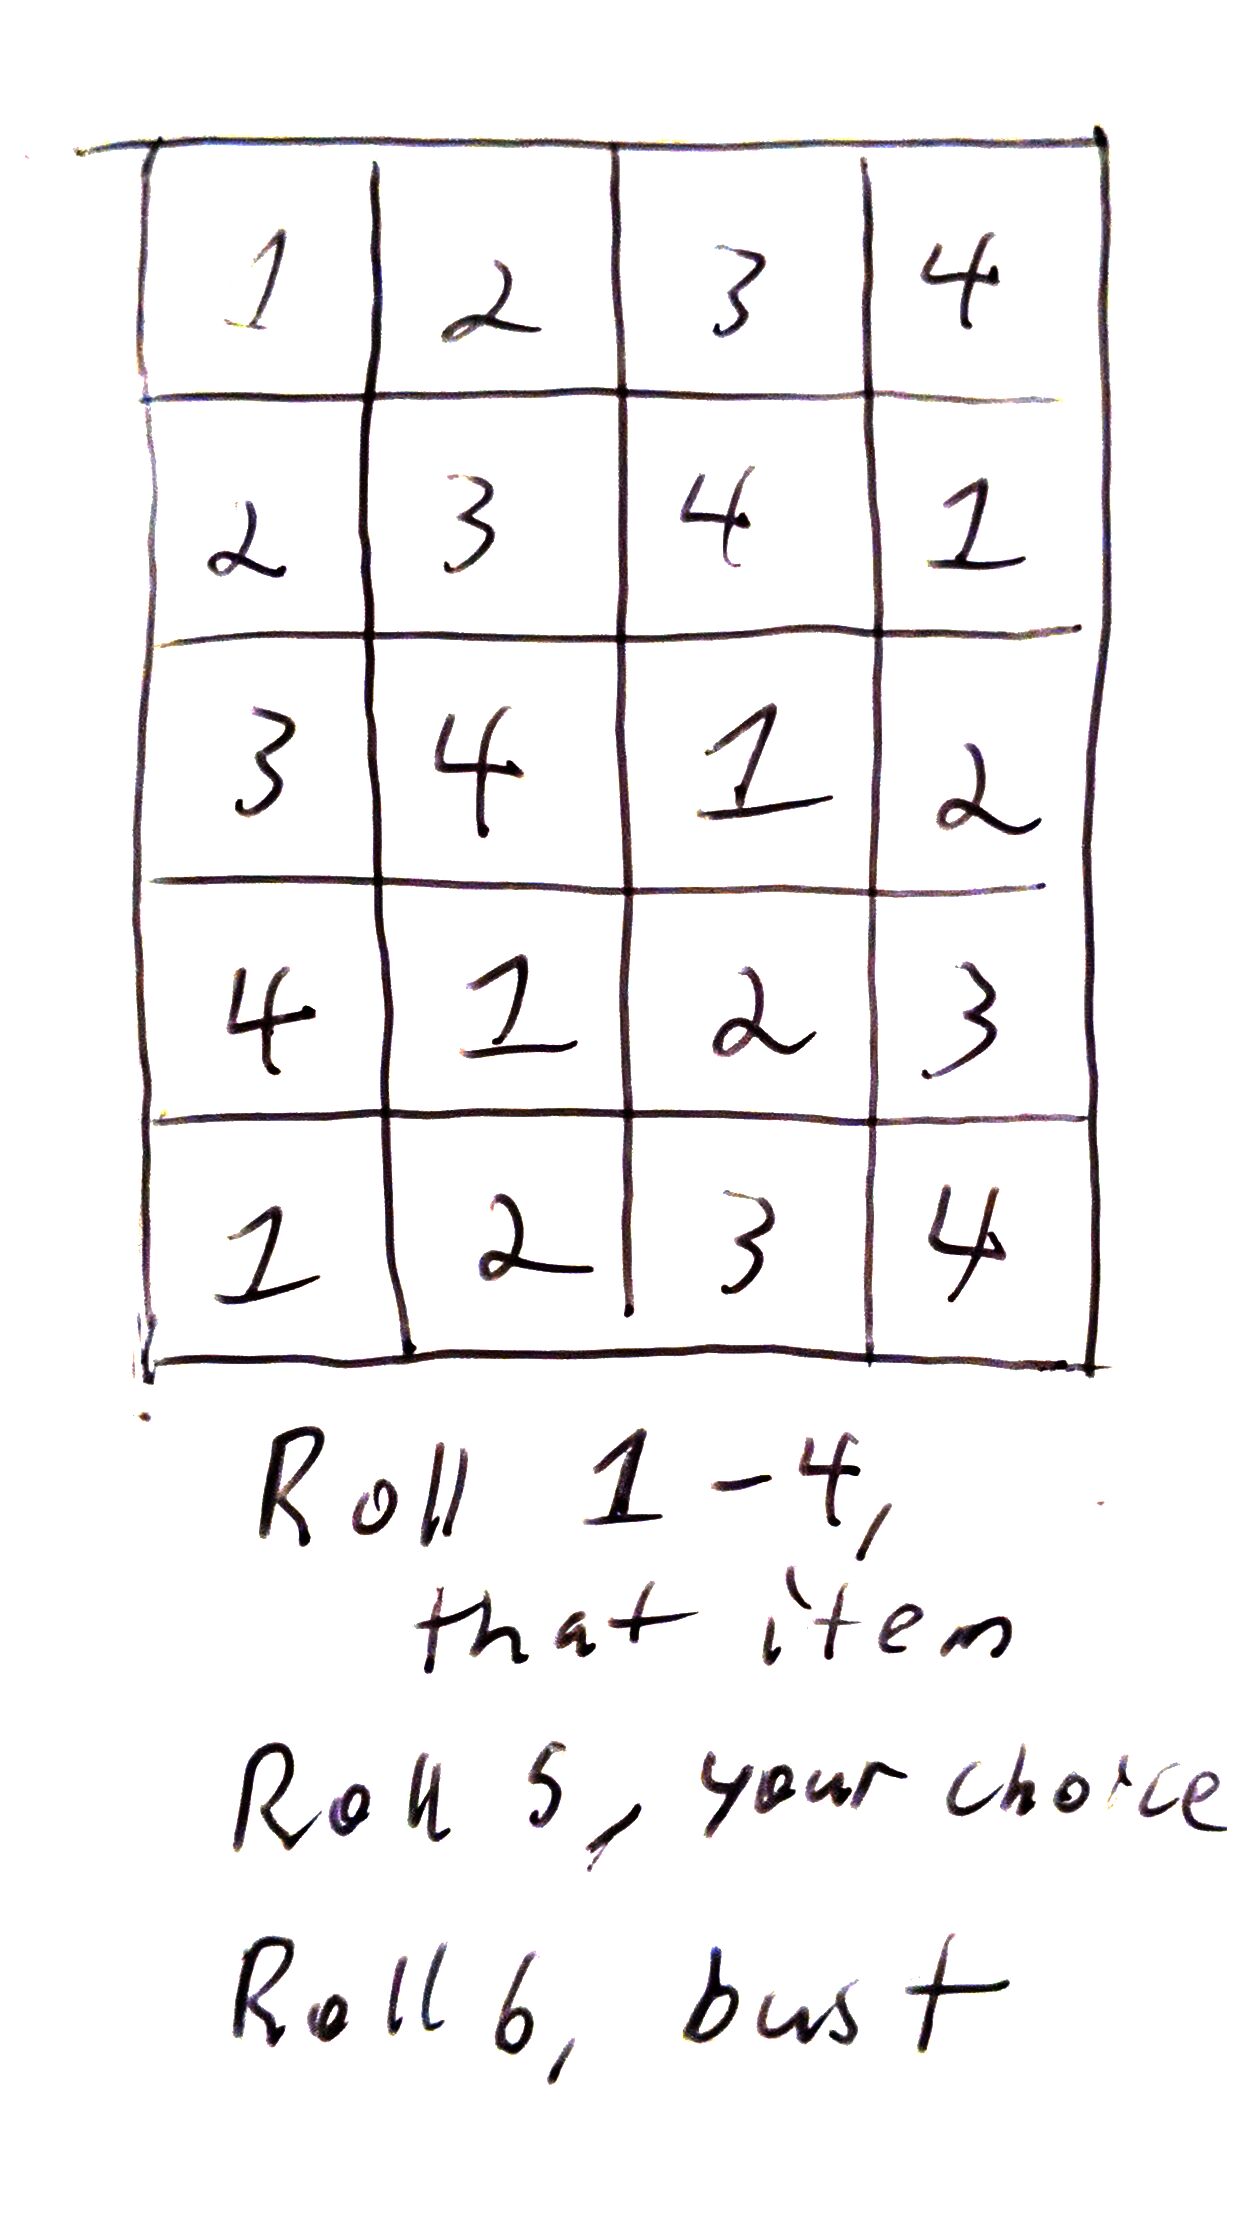 1 2 3 4
2 3 4 1
3 4 1 2
4 1 2 3
1 2 3 4
Roll 1-4,
that item
Roll 5, your choice
Roll 6, bust